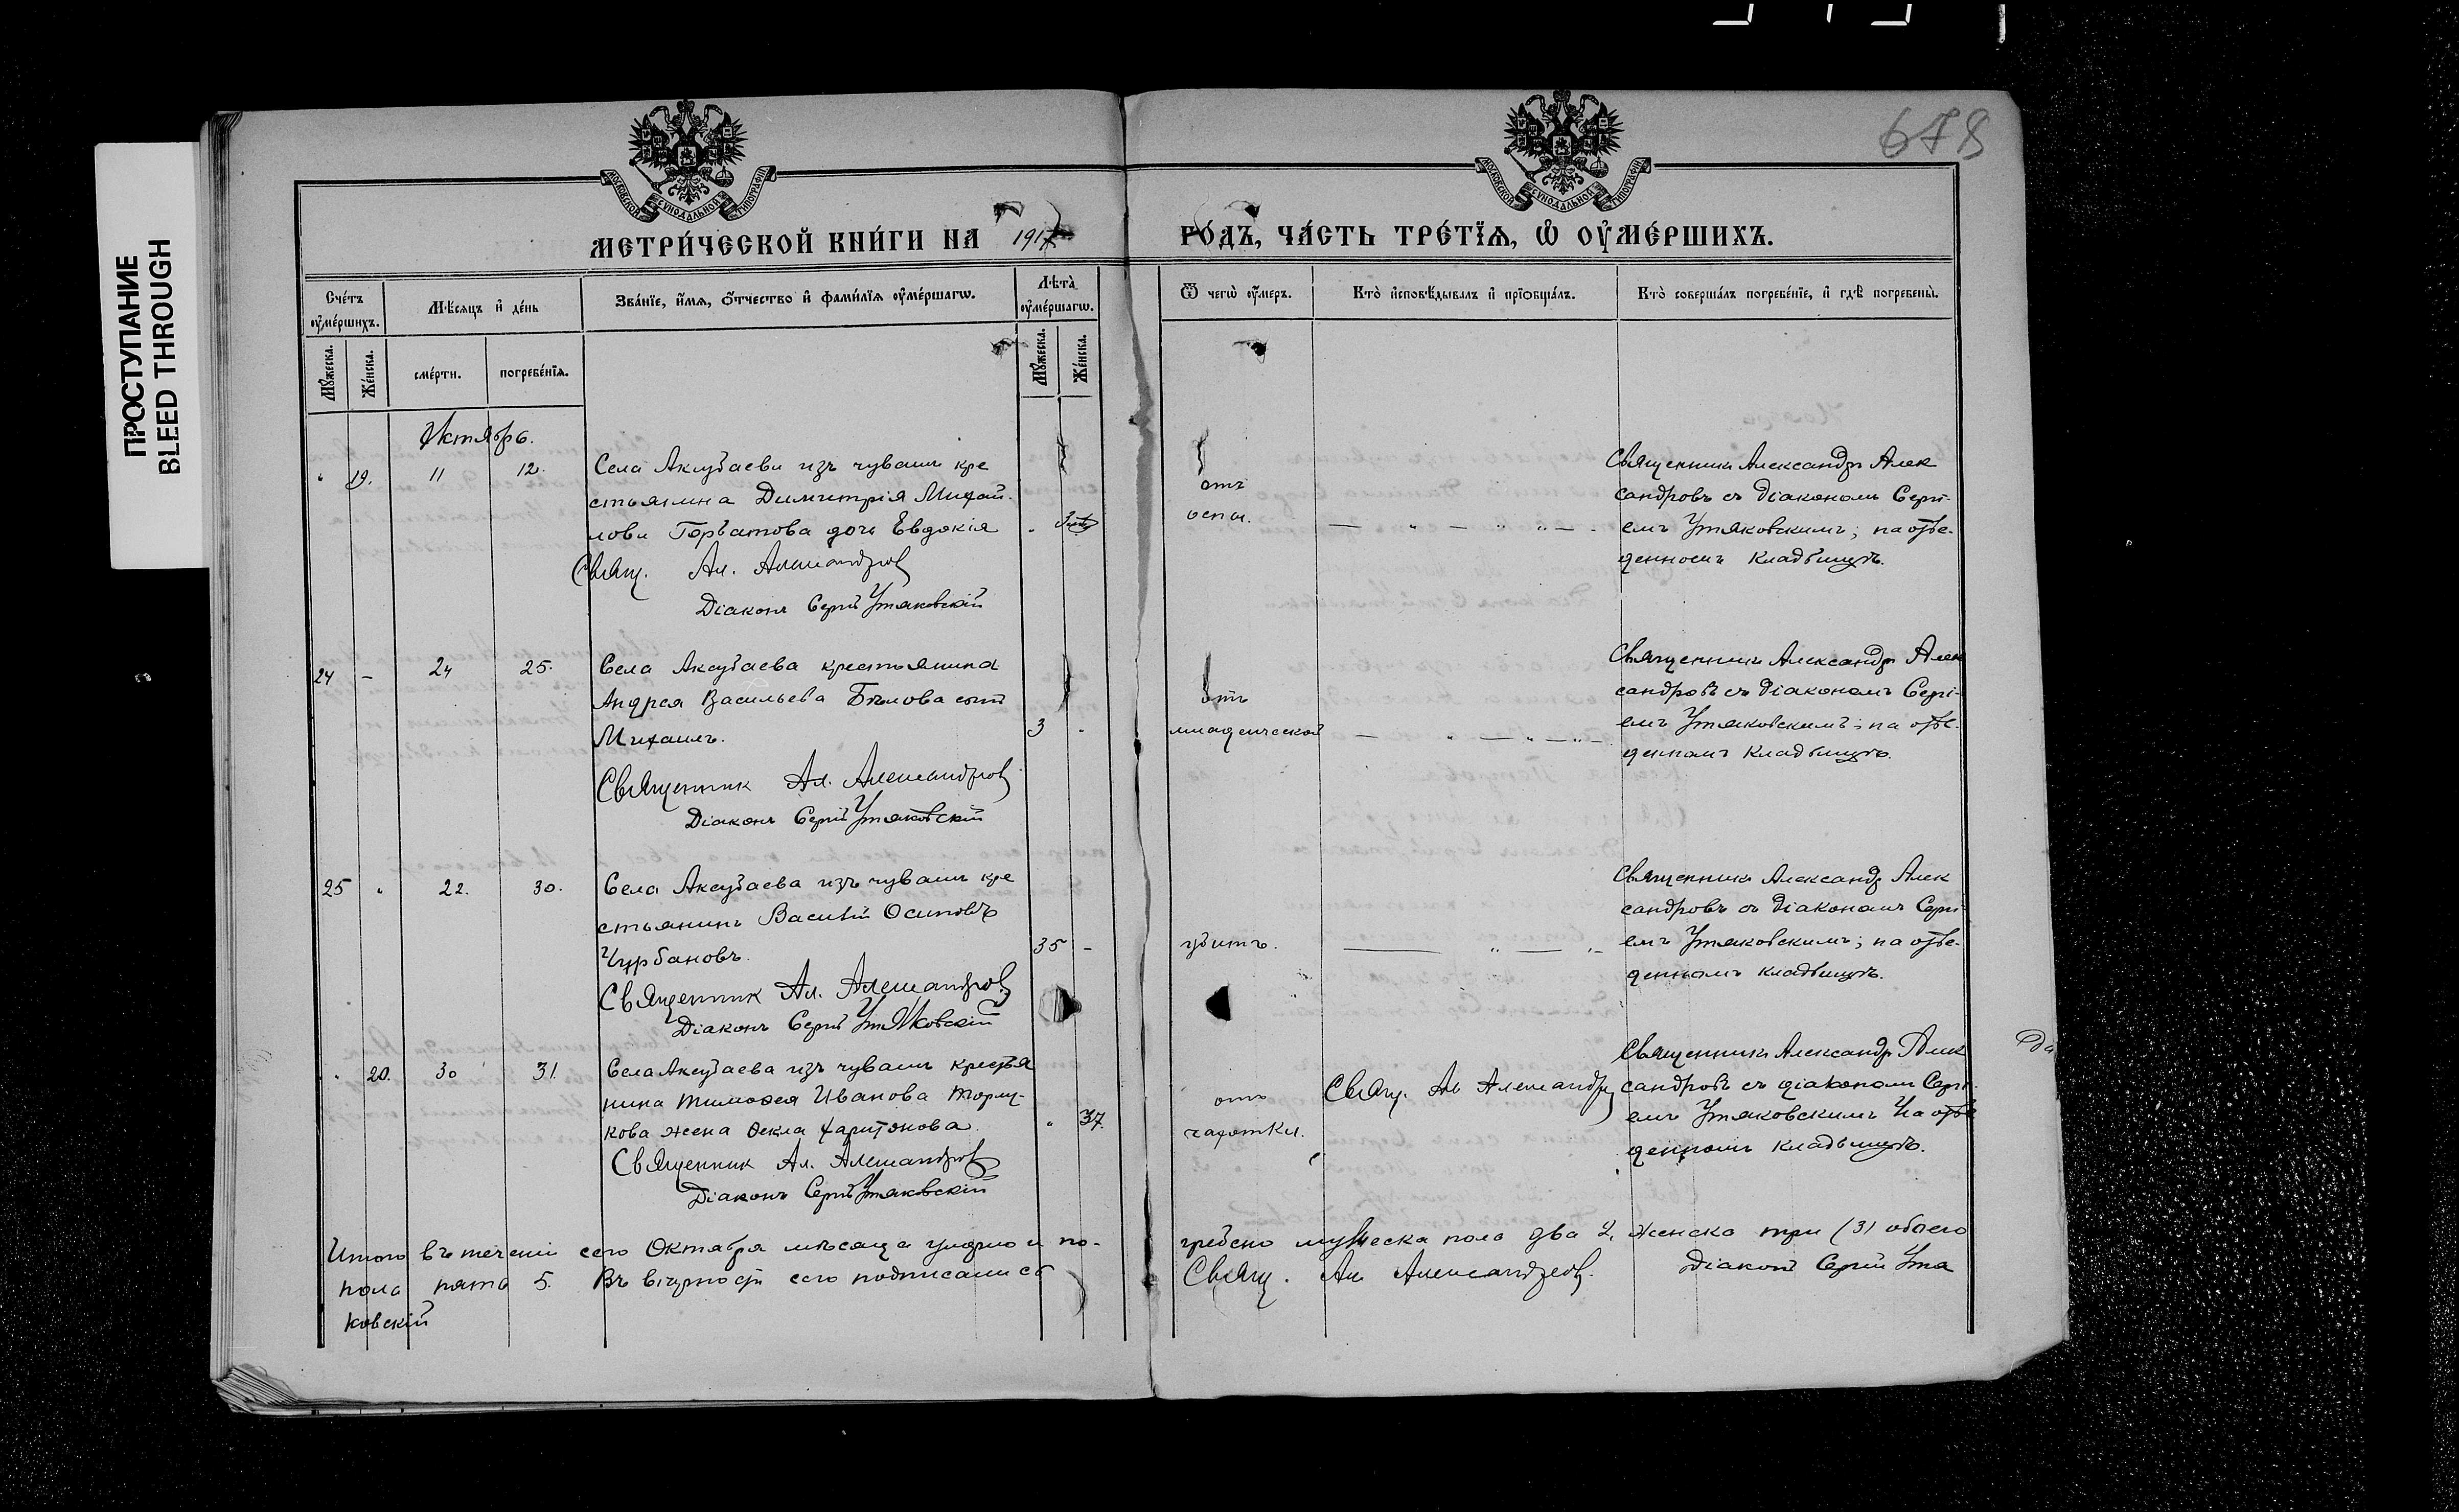 ПРОСТУПАНИЕ
BLEED THROUGH
678
МОСКОВСКОЙ СѴНОДАЛЬНОЙ ТИПОГРАФІИ
МОСКОВСКОЙ СѴНОДАЛЬНОЙ ТИПОГРАФІИ
МЕТРИ́ЧЕСКОЙ КНИ́ГИ НА 1917 ГО́ДЪ, ЧА́СТЬ ТРЕ́ТЇѦ, Ѡ҆ ОУ҆МЕ́РШИХЪ.
Сче́тъ оу҆ме́ршихъ.
Мꙋ́жеска.
Же́нска.
Мѣ́сѧцъ и҆ де́нь
сме́рти.
погребе́нїѧ.
Зва́нїе, и҆́мѧ, ѻ҆́тчество и҆ фами́лїѧ оу҆ме́ршагѡ.
Лѣ́та оу҆ме́ршагѡ.
Мꙋ́жеска.
Же́нска.
Ѿ чегѡ̀ оу҆́меръ.
Кто̀ и҆сповѣ́дывалъ и҆ прїѡбща́лъ.
Кто̀ соверша́лъ погребе́нїе, и҆ гдѣ̀ погребены̀.
Октябрь.
" 19. 11 12.
Села Аксубаева изъ чувашъ кре
стьянина Димитрія Михай-
лова Горбатова дочь Евдокія
Свящ. Ал. Александровъ
Діаконъ Сергій Утяковскій
отъ
оспы.
Священникъ Александръ Алек
сандровъ съ діакономъ Сергі-
емъ Утяковскимъ; на отве-
денномъ кладбищѣ.
24 – 24 25.
Села Аксубаева крестьянина
Андрея Васильева Бѣлова сынъ
Михаилъ.
3 "
Священник Ал. Александровъ
Діаконъ Сергій Утяковскій
отъ
младенческой
Священникъ Александръ Алек
сандровъ съ діакономъ Сергі-
емъ Утяковскимъ; на отве-
денномъ кладбищѣ.
25 " 22. 30.
Села Аксубаева изъ чувашъ кре
стьянинъ Василій Осиповъ
Чурбановъ.
35 –
Священник Ал. Александровъ
Діаконъ Сергій Утяковскій
убитъ.
Священникъ Александръ Алек
сандровъ съ діакономъ Сергі-
емъ Утяковскимъ; на отве-
денномъ кладбищѣ.
" 20. 30 31.
Села Аксубаева изъ чувашъ крестья
нина Тимоѳея Иванова
кова жена Ѳекла Харитонова.
" 37.
Священник Ал. Александровъ
Діаконъ Сергій Утяковскій
отъ
чахотки.
Свящ. Ал Александров
Священникъ Александръ Алек
сандровъ съ діакономъ Сергі-
емъ Утяковскимъ На отве
денномъ кладбищѣ.
Итого въ теченіи сего Октября мѣсяца умерло и по-
гребено мужеска пола два 2, женска три (3) обоего
пола пять 5. Въ вѣрности сего подписались
Свящ. Ал Александровъ. Діаконъ Сергій Утя
ковскій